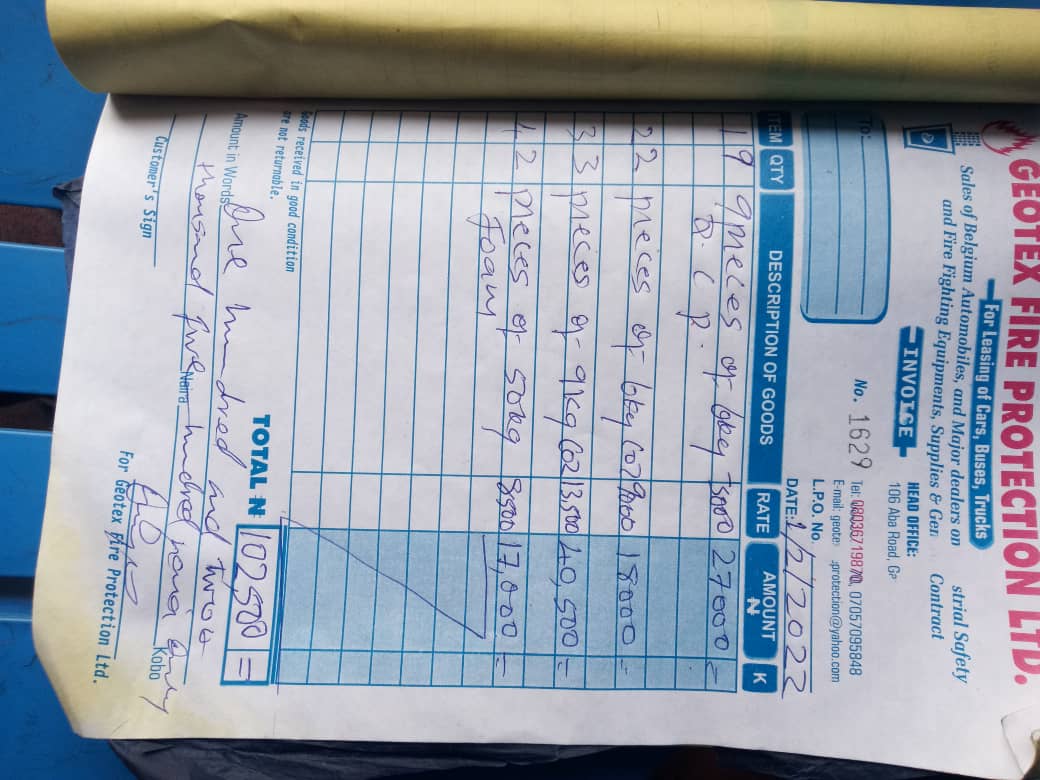 GEOTEX FIRE PROTECTION LTD.
For Leasing of Cars, Buses, Trucks
Sales of Belgium Automobiles, and Major dealers on strial Safety
and Fire Fighting Equipments, Supplies & Gen Contract
INVOICE
HEAD OFFICE:
106 Aba Road, GP
No. 1629
Tel: 08036719870, 07057095848
E-mail: geote protection@yahoo.com
To:
L.P.O. No.
DATE: 1/2/2022
ITEM QTY DESCRIPTION OF GOODS RATE AMOUNT K
N
1 9 9pieces of 6kg 3000 27000=
D.C.P.
2 2 pieces of 6kg Co2 9000 18000=
3 3 pieces of 9kg Co2 13,500 40,500=
4 2 pieces of 50kg 8500 17,000=
Foam
Goods received in good condition
are not returnable.
TOTAL N 102,500=
Amount in Words One hundred and two
thousand five Naira hundred naira only Kobo
Customer's Sign
For Geotex Fire Protection Ltd.